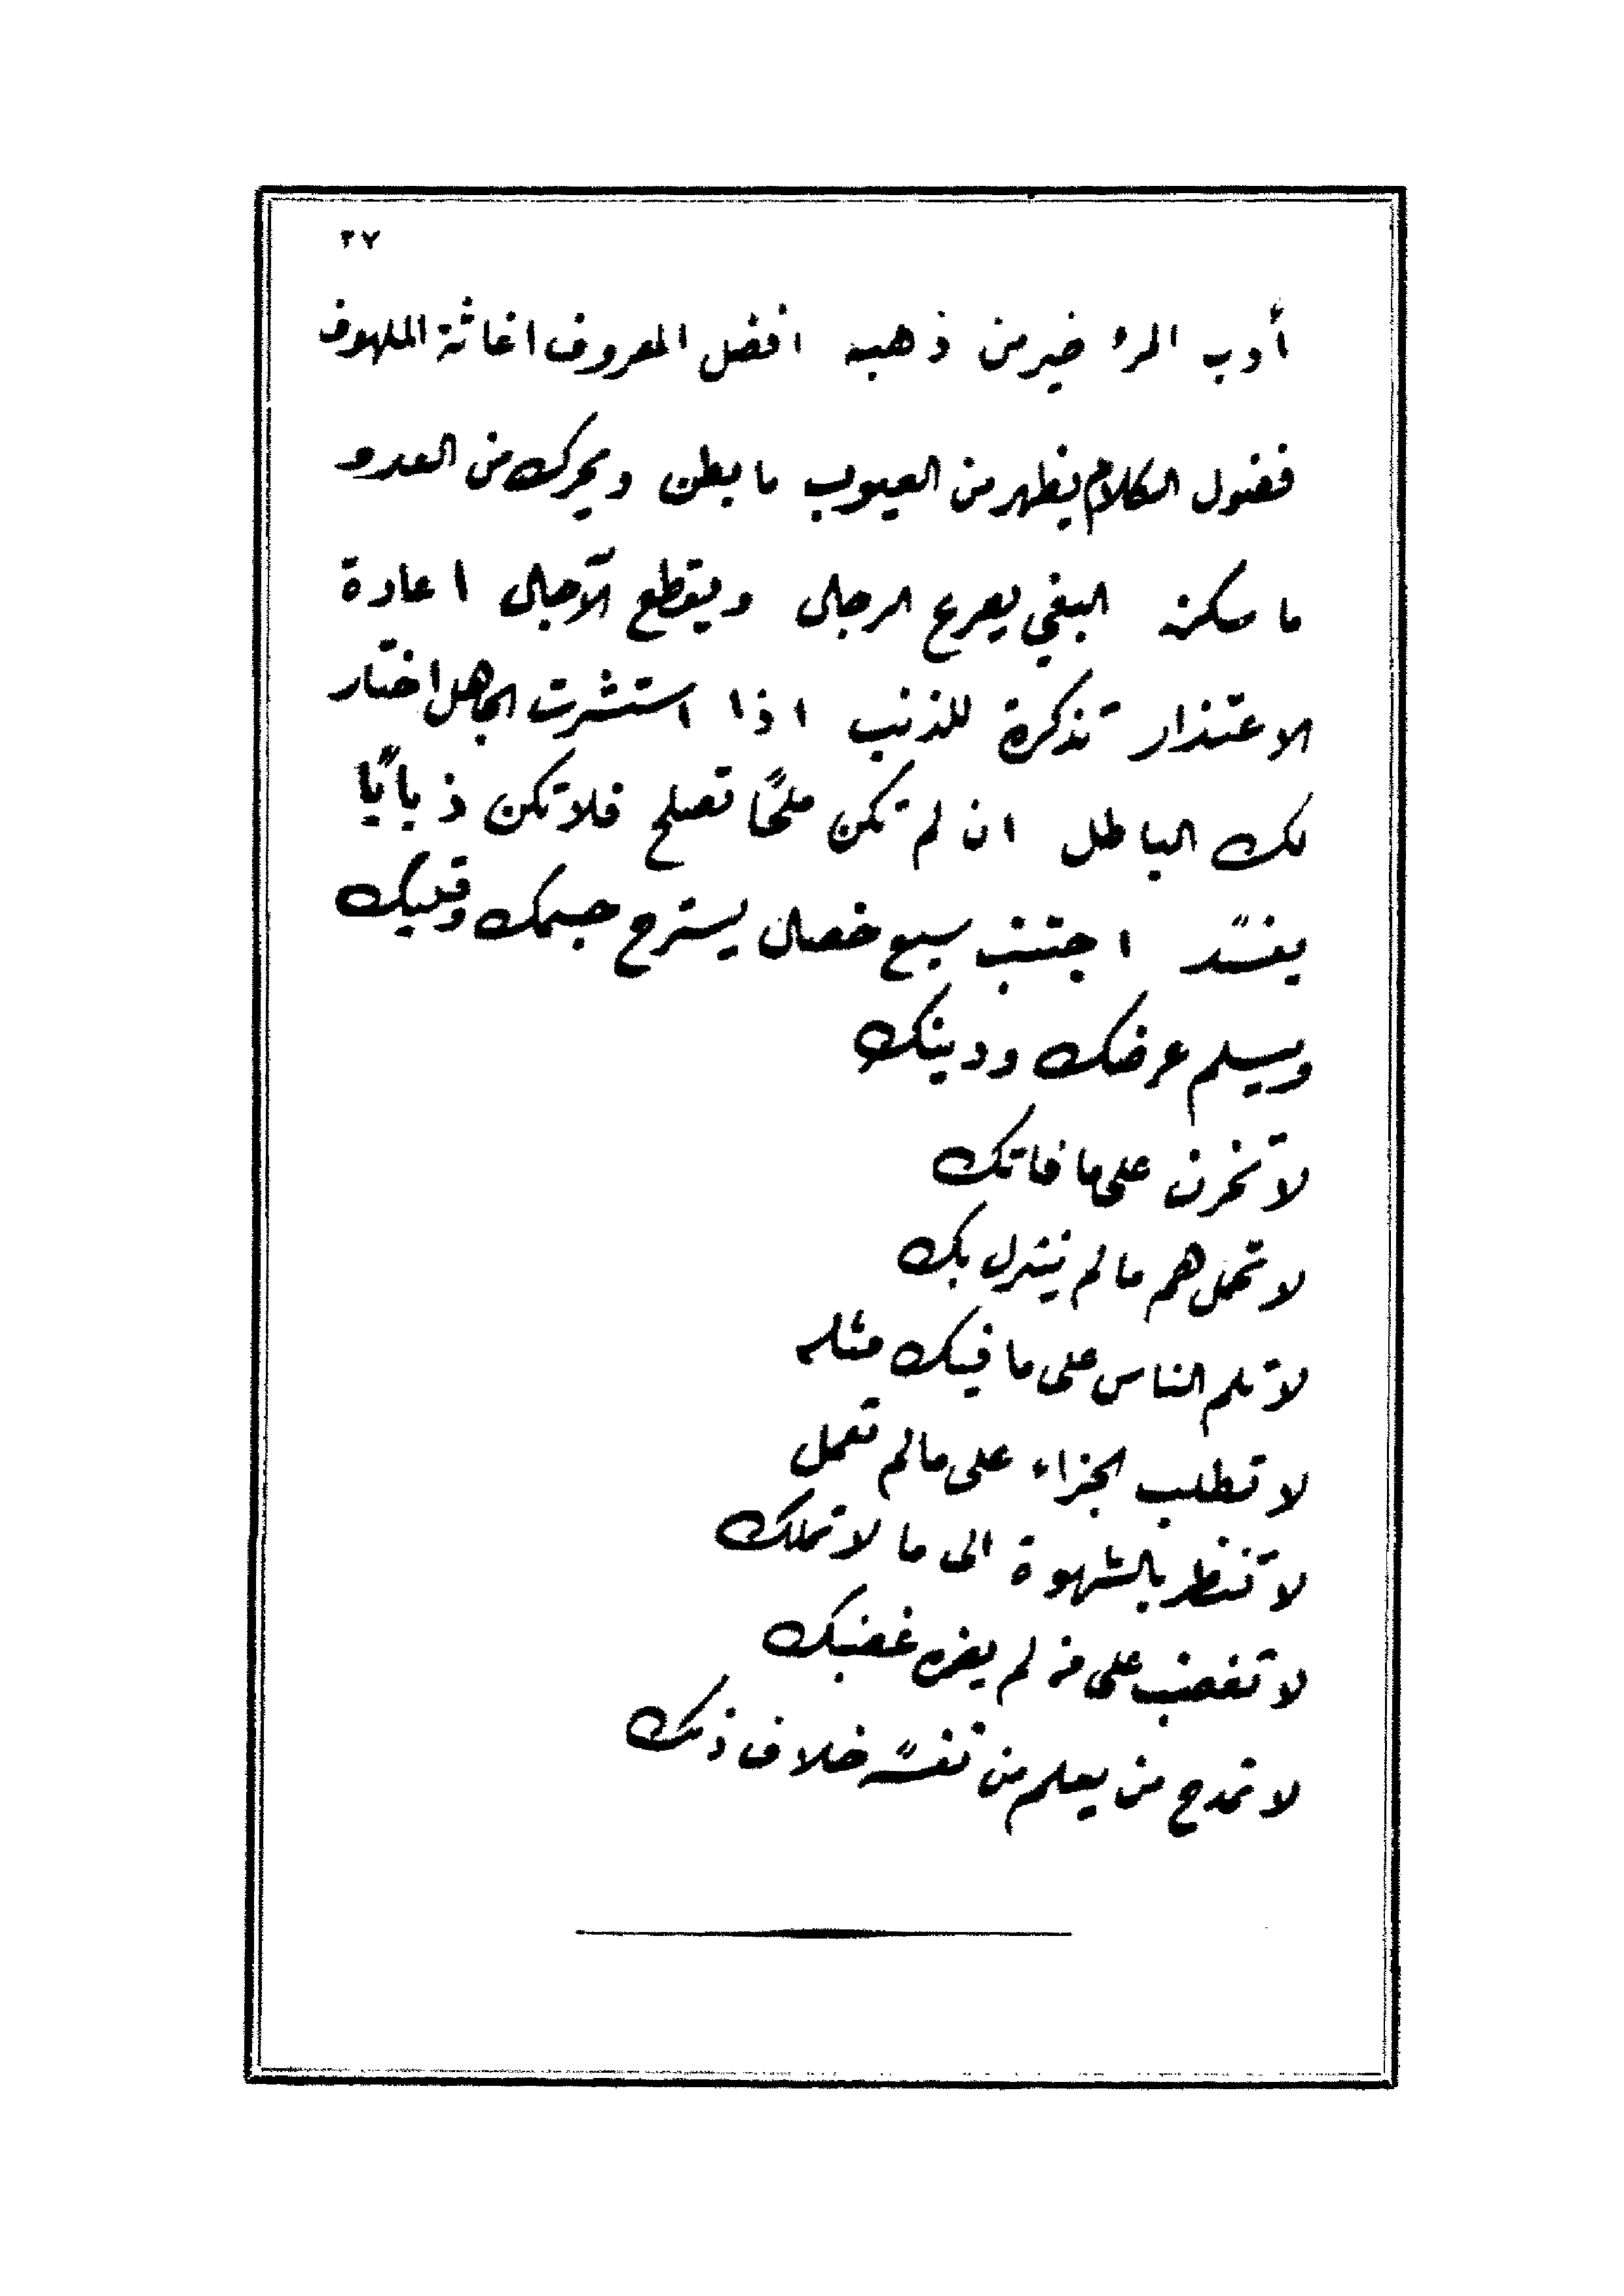 ٢٧
أدب المرء خير من ذهبه افضل المعروف اغاثة الملهوف
فضول الكلام يظهر من العيوب ما بطن ويحرك من العدو
ما سكن البغي يصرع الرجال ويقطع الآجال اعادة
الاعتذار تذكرة للذنب اذا استشرت الجاهل اختار
لك الباطل ان لم تكن ملحًا تصلح فلا تكن ذبابًا
يفسد اجتنب سبع خصال يسترح جسمك وقلبك
ويسلم عرضك ودينك
لا تحزن على ما فاتك
لا تحمل هم ما لم ينزل بك
لا تلم الناس على ما فيك مثله
لا تطلب الجزاء على ما لم تعمل
لا تنظر بالشهوة الى ما لا تملك
لا تغضب على من لم يضره غضبك
لا تمدح من يعلم من نفسه خلاف ذلك